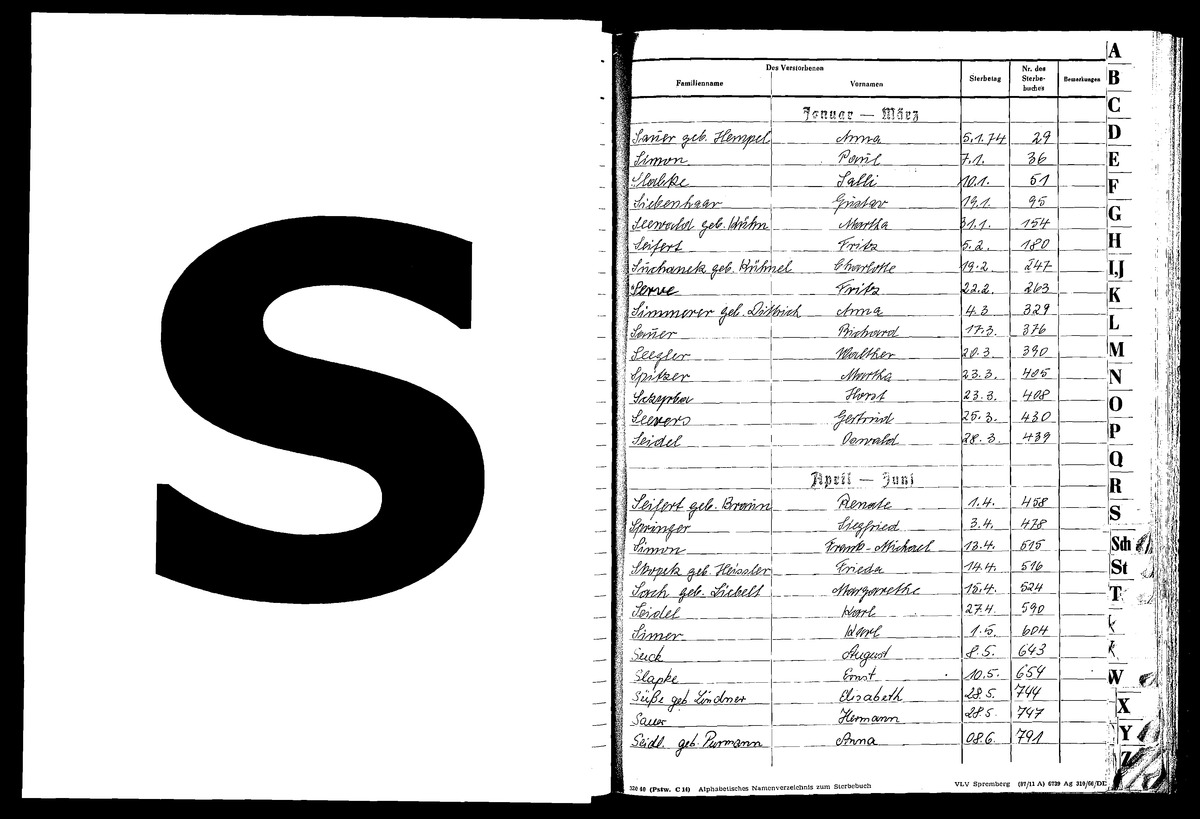 S
Des Verstorbenen
Familienname Vornamen Sterbetag Nr. des Sterbe-buches Bemerkungen
Januar — März
Sauer geb. Hempel Anna 5.1.74 29
Simon Paul 7.1. 36
Slabke Salli 10.1. 51
Siebenhaar Gustav 19.1. 95
Seewald geb. Kühn Martha 31.1. 154
Seifert Fritz 5.2. 180
Suchanek geb. Kühnel Charlotte 19.2. 247
Serve Fritz 22.2. 263
Simmerer geb. Dittrich Anna 4.3 329
Sauer Richard 17.3. 376
Seegler Walther 20.3. 390
Spitzer Martha 23.3. 405
Horst 23.3. 408
Seevers Gertrud 25.3. 430
Seidel Oswald 28.3. 439
April — Juni
Seifert geb. Braun Renate 1.4. 458
Springer Siegfried 3.4. 478
Simon Frank-Michael 13.4. 515
Skopek geb. Heissler Frieda 14.4. 516
Sorch geb. Liebelt Margarethe 15.4. 524
Seidel Karl 27.4. 590
Simer Karl 1.5. 604
Suck August 8.5. 643
Slapke Ernst 10.5. 654
Süße geb Lindner Elisabeth 28.5. 744
Sauer Hermann 28.5. 747
Seidl. geb. Purmann Anna 08.6. 791
320 40 (Pstw. C 14) Alphabetisches Namenverzeichnis zum Sterbebuch VLV Spremberg (87/11 A) 6739 Ag 310/66/DD
A
B
C
D
E
F
G
H
I,J
K
L
M
N
O
P
Q
R
S
Sch
St
T
W
X
Y
Z